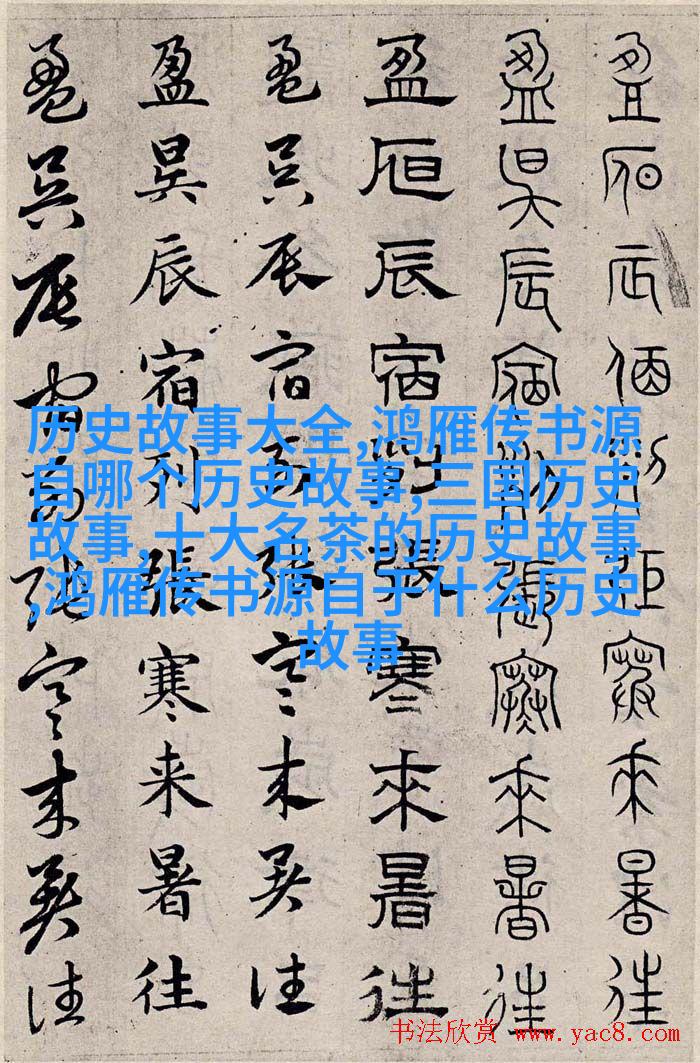 盈昃辰宿列張寒來暑往
盈昃辰宿列張寒來暑往
盈昃辰宿列張寒來暑往
盈昃辰宿列張寒来暑往
盈昃辰宿列張寒来暑往
盈昃辰宿列張寒来暑往
历史故事大全,鸿雁传书源
自哪个历史故事,三国历史
故事,十大名茶的历史故事
,鸿雁传书源自于什么历史
故事
书法欣赏 www.yac8.com